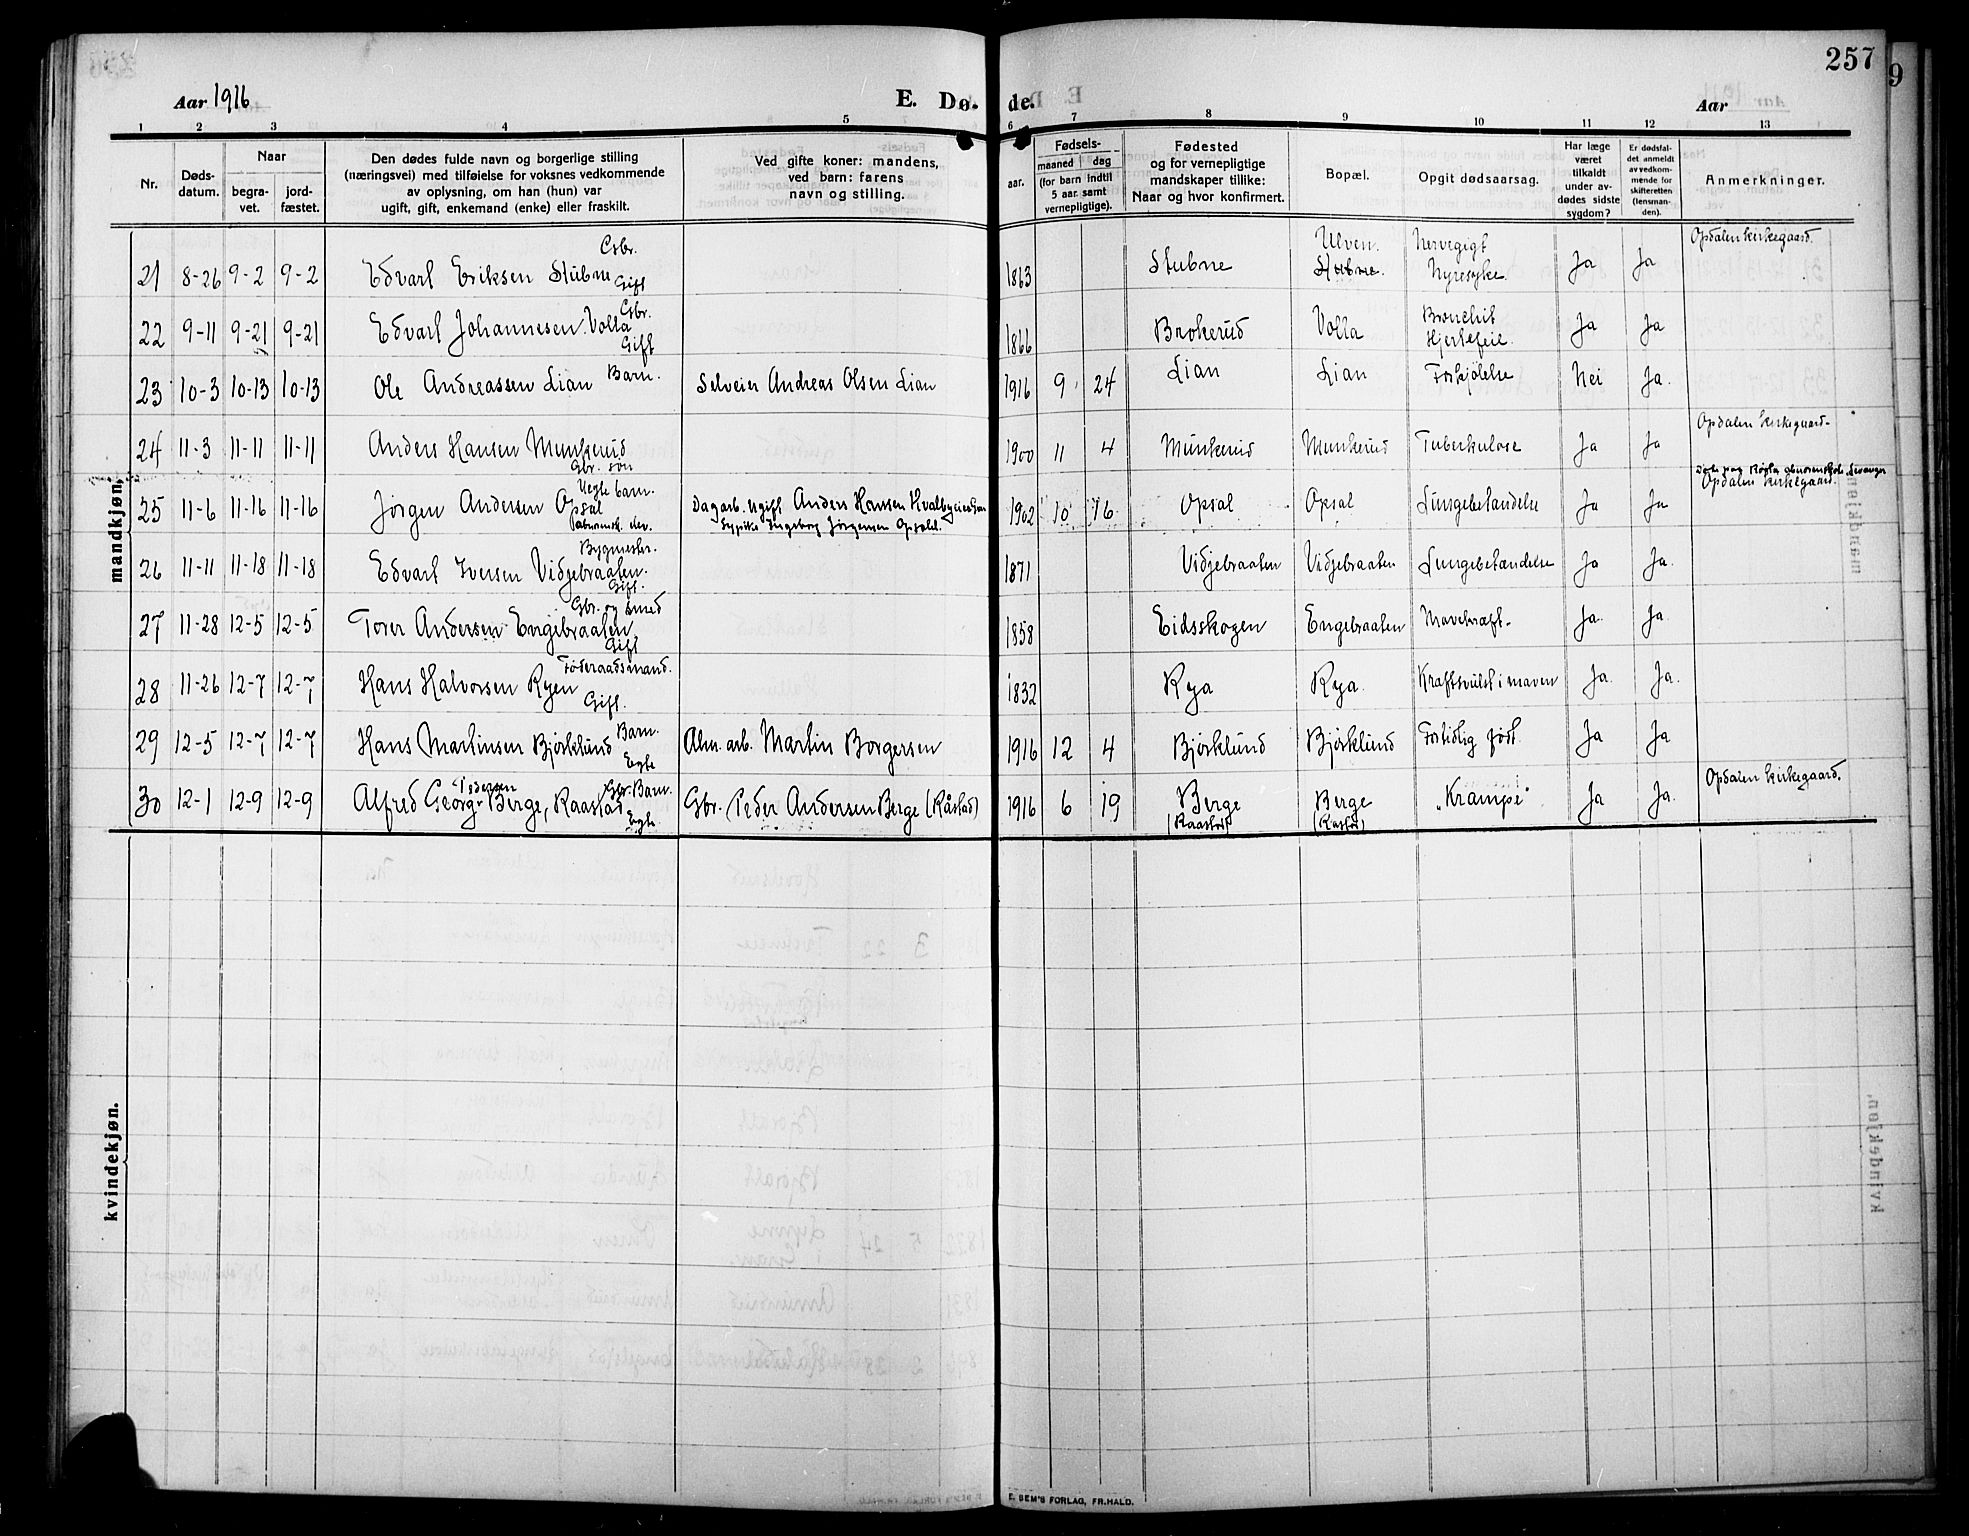 257
9
Aar 1916
E. Dø-
de.
Aar
1 2 3 4 5 6 7 8 9 10 11 12 13
Nr.
Døds-
datum.
Naar
begra-
vet.
jord-
fæstet.
Den dødes fulde navn og borgerlige stilling
(næringsvei) med tilføielse for voksnes vedkommende
av oplysning, om han (hun) var
ugift, gift, enkemand (enke) eller fraskilt.
Ved gifte koner: mandens,
ved barn: farens
navn og stilling.
aar.
Fødsels-
maaned dag
(for barn indtil
5 aar samt
vernepligtige).
Fødested
og for vernepligtige
mandskaper tillike:
Naar og hvor konfirmert.
Bopæl.
Opgit dødsaarsag.
Har læge
været
tilkaldt
under av-
dødes sidste
sygdom?
Er dødsfal-
det anmeldt
av vedkom-
mende for
skifteretten
(lensman-
den).
Anmerkninger.
mandkjøn,
Gbr.
21 8-26 9-2 9-2 Edvart Eriksen Stubne Gift 1863 Stubne Ulven. Stubne. Nervegigt Nyresyke. Ja Ja Opdalen kirkegaard.
Gbr.
22 9-11 9-21 9-21 Edvart Johannesen Volla Gift 1866 Brokerud Volla Bronchit Hjertefeil. Ja Ja
23 10-3 10-13 10-13 Ole Andreassen Lian Barn. Selveier Andreas Olsen Lian 1916 9 24 Lian Lian Forkjølelse Nei Ja.
24 11-3 11-11 11-11 Anders Hansen Munkerud Gbr. søn 1900 11 4 Munkerud Munkerud Tuberkulose Ja Ja Opdalen kirkegaard.
Uegte barn.
25 11-6 11-16 11-16 Jørgen Andersen Opsal Dagarb. ugift Anders Hansen
Ingeborg Jørgensen Opsal 1902 10 16 Opsal Opsal Lungebetændelse Ja Ja Opdalen kirkegaard.
Bygmester.
26 11-11 11-18 11-18 Edvart Iversen Vidjebraaten. Gift. 1871 Vidjebraaten Vidjebraaten Lungebetændelse Ja Ja.
Gbr. og smed
27 11-28 12-5 12-5 Torer Andersen Engebraaten, Gift 1858 Eidsskogen Engebraaten Mavekræft. Ja. Ja.
Føderaadsmand.
28 11-26 12-7 12-7 Hans Halvorsen Ryen Gift. 1832 Rya Rya. Kræftsvulst i maven Ja. Ja.
29 12-5 12-7 12-7 Hans Martinsen Bjørklund Barn. Egte Alm. arb. Martin Borgersen 1916 12 4 Bjørklund Bjørklund Fortidlig født. Ja Ja
Pedersen
30 12-1 12-9 12-9 Alfred Georg Berge, Raastad Gbr. Barn. Egte. Gbr. Peder Andersen Berge (Råstad) 1916 6 19 Berge (Raastad) Berge (Rastad) "Krampe" Ja Ja. Opdalen kirkegaard.
kvindekjøn.
E. SEM'S FORLAG, FR.HALD.